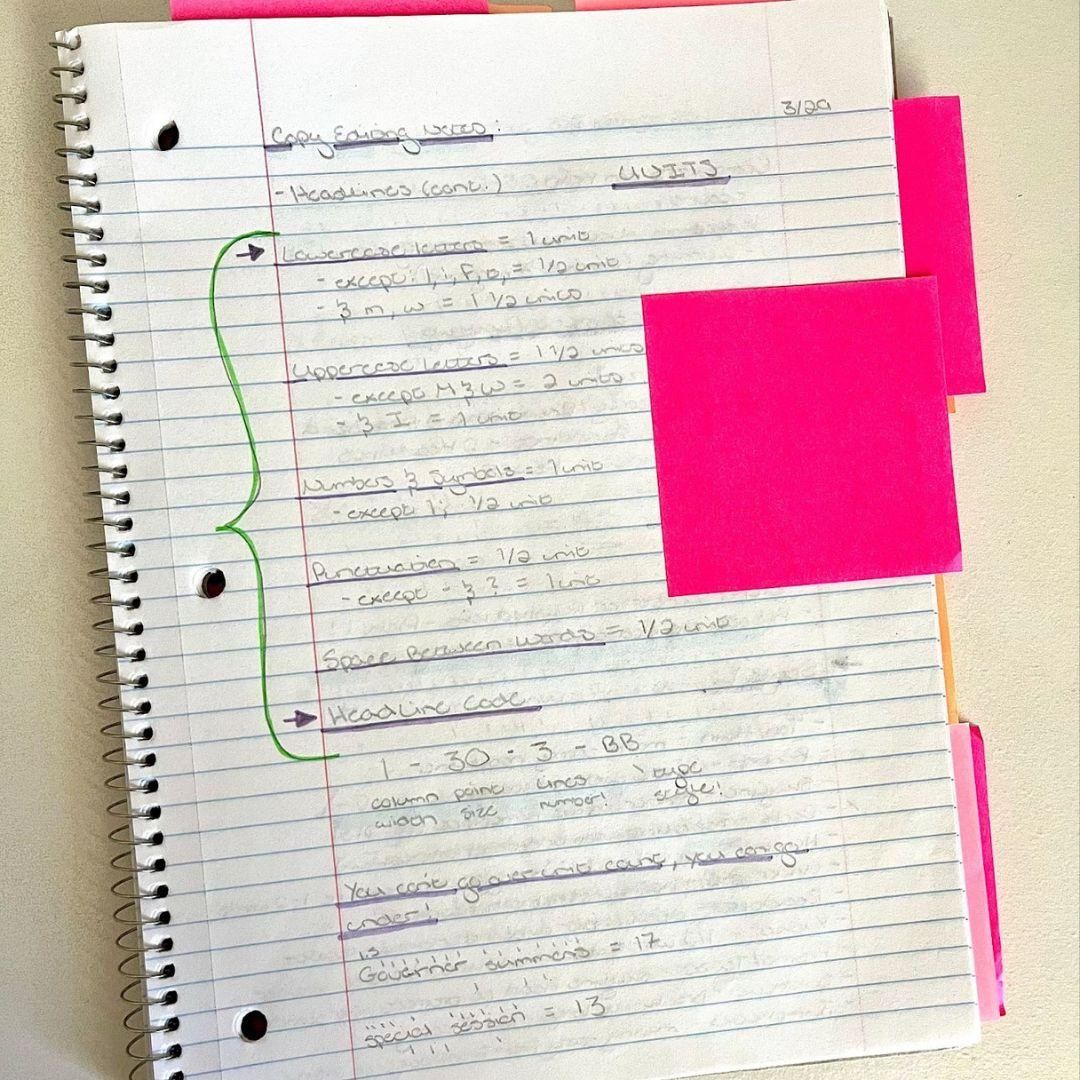 Copy Editing Notes:
3/29
- Headlines (cont.)
UNITS
Lowercase letters = 1 unit
- except: l, i, f, t, = 1/2 unit
- & m, w = 1 1/2 units
Uppercase letters = 1 1/2 units
- except M & W = 2 units
- & I = 1 unit
Numbers & Symbols = 1 unit
- except 1; 1/2 unit
Punctuation = 1/2 unit
- except - & ? = 1 unit
Space Between Words = 1/2 unit
Headline Code
1 - 30 - 3 - BB
column point lines type
width size number! style!
You can't go over unit count, you can go
under!
1.5
Governor summons = 17
special session = 13